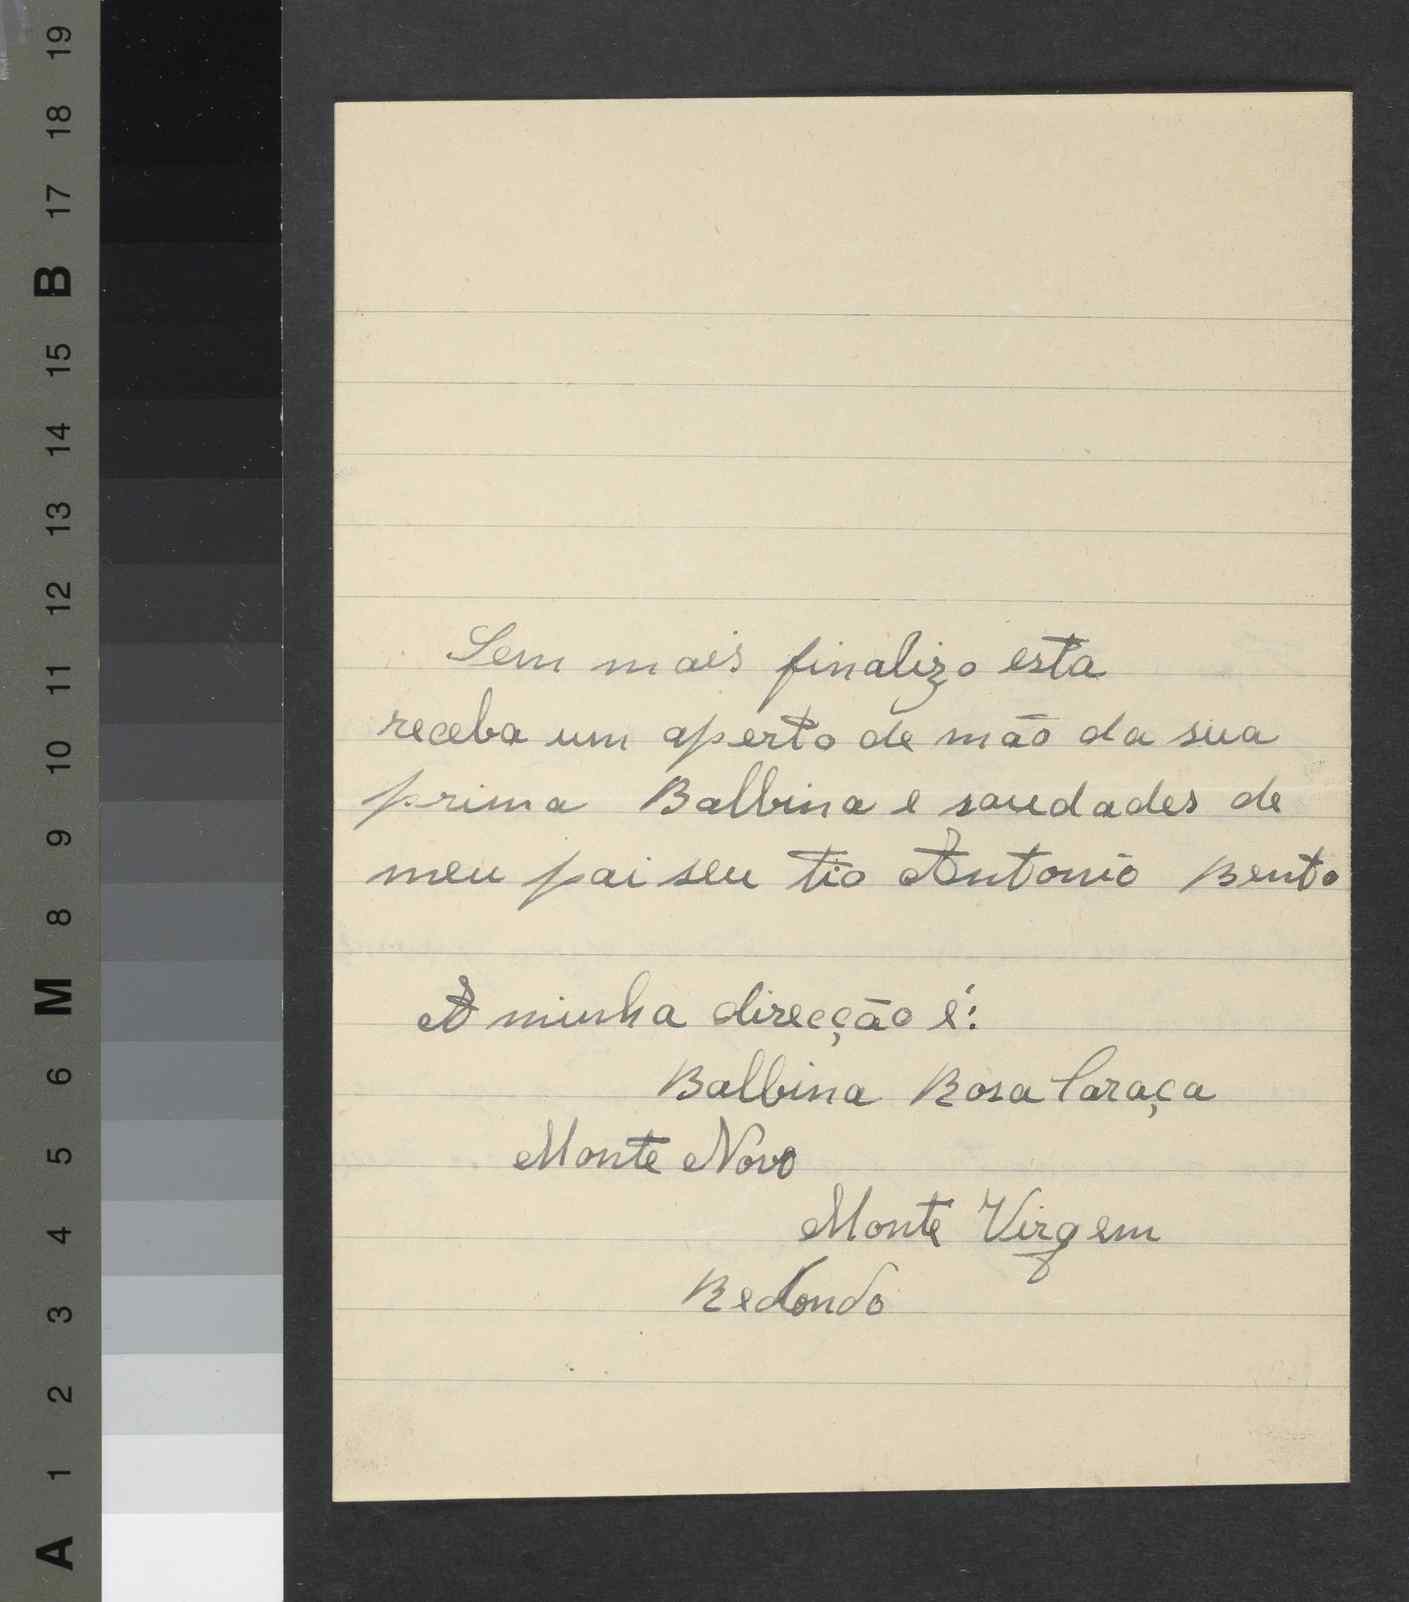 19
18
17
B
15
14
13
12
11
10
9
8
M
6
5
4
3
2
1
A
Sem mais finalizo esta
receba um aperto de mão da sua
prima Balbina e saudades de
meu pai seu tio Antonio Bento
A minha direcção é:
Balbina Rosa Caraça
Monte Novo
Monte Virgem
Redondo